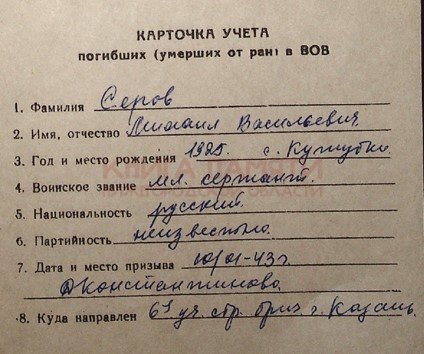 КАРТОЧКА УЧЕТА
погибших (умерших от ран) в ВОВ
1. Фамилия Серов
2. Имя, отчество Михаил Васильевич.
3. Год и место рождения 1925. с.
КНИГА ПАМЯТИ
4. Воинское звание мл. сержант.
НИЖЕГОРОДСКОЙ ОБЛАСТИ
5. Национальность русский.
6. Партийность неизвестно.
7. Дата и место призыва 10/01-43 г.
Д Константиново.
8. Куда направлен 61 уч. стр. бриг. г. Казань.